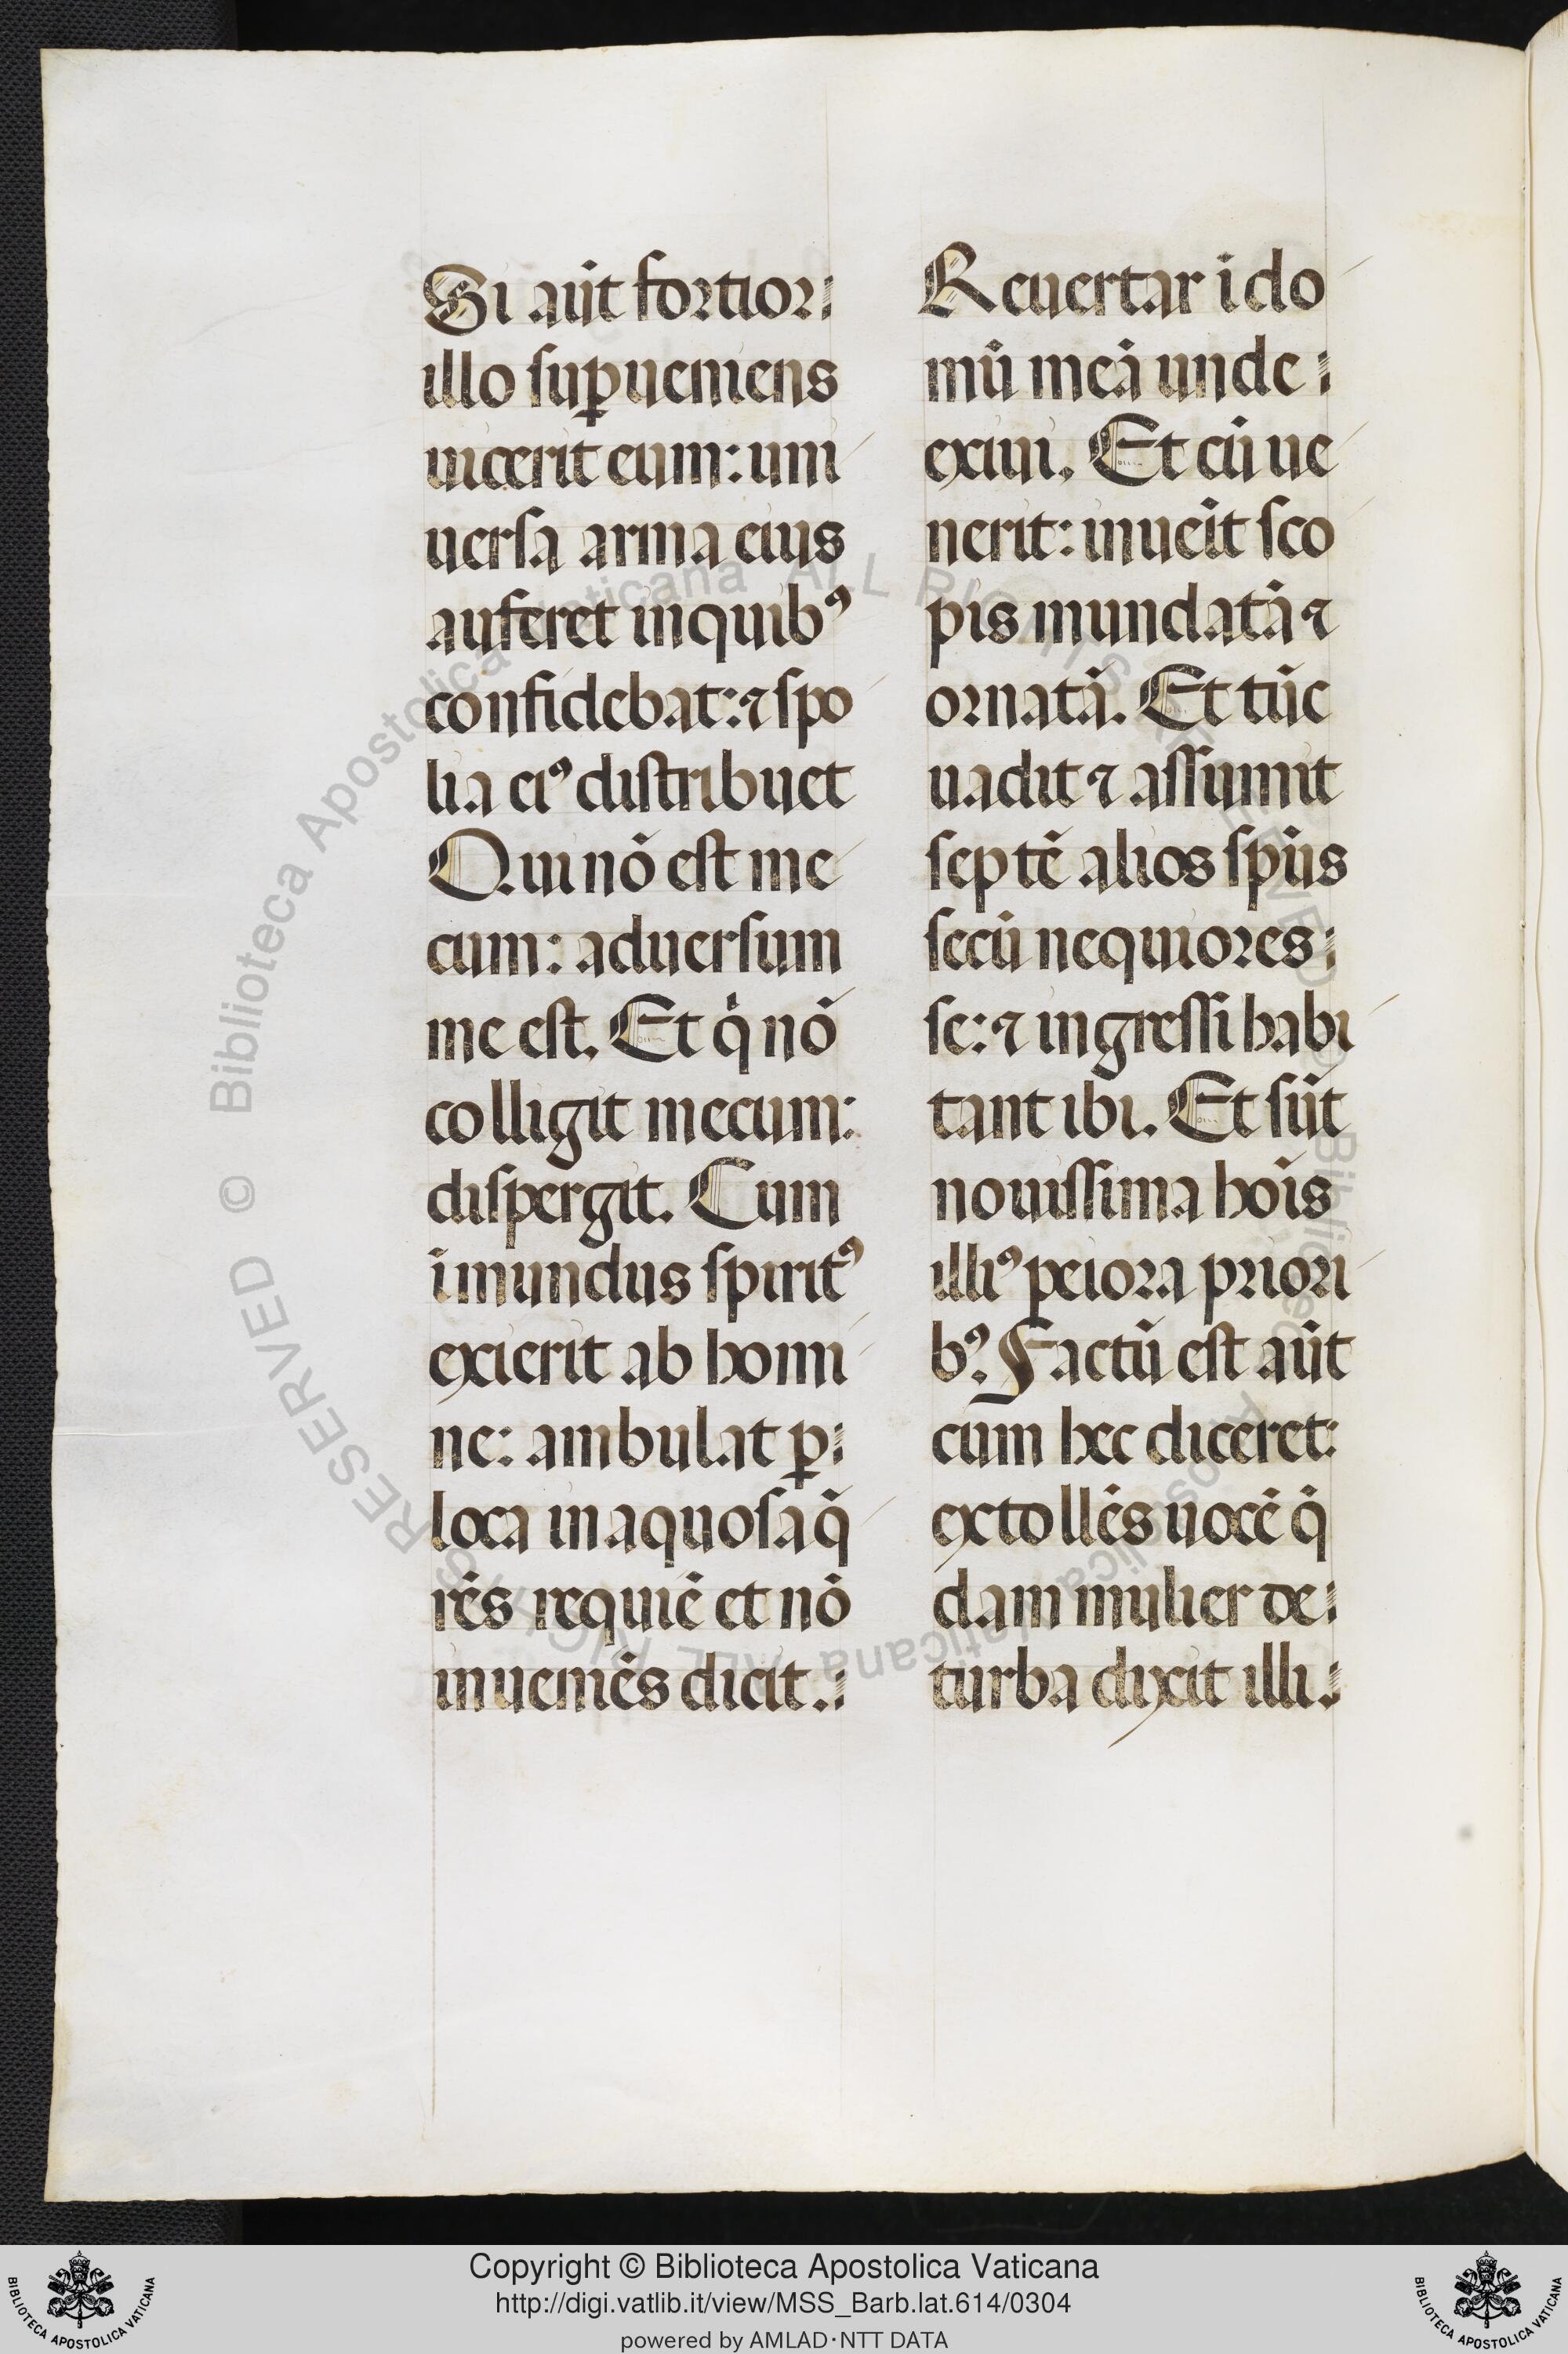 Si aūt fortior
illo suꝑueniens
uicerit eum: uni
uersa arma eius
auferet in quibꝰ
confidebat: ⁊ spo
lia eiꝰ distribuet
Qui nō est me
cum: aduersum
me est. Et q̇ nō
colligit mecum:
dispergit. Cum
īmundus spiritꝰ
exierit ab homi
ne: ambulat ꝑ
loca inaquosa q̄
rēs requiē et nō
inueniēs dicit.
Reuertar ī do
mū meā unde
exiui. Et cū ue
nerit: inueīt sco
pis mundatā ⁊
ornatā. Et tūc
uadit ⁊ assumit
septē alios spūs
secū nequiores
se: ⁊ ingressi habi
tant ibi. Et sūt
nouissima hoīs
illiꝰ peiora priori
bꝰ. Factū est aūt
cum hec diceret:
extollēs uocē q̄
dam mulier de
turba dixit illi.
© Biblioteca Apostolica Vaticana ALL RIGHTS RESERVED
Copyright © Biblioteca Apostolica Vaticana
http://digi.vatlib.it/view/MSS_Barb.lat.614/0304
powered by AMLAD·NTT DATA
BIBLIOTECA APOSTOLICA VATICANA
BIBLIOTECA APOSTOLICA VATICANA